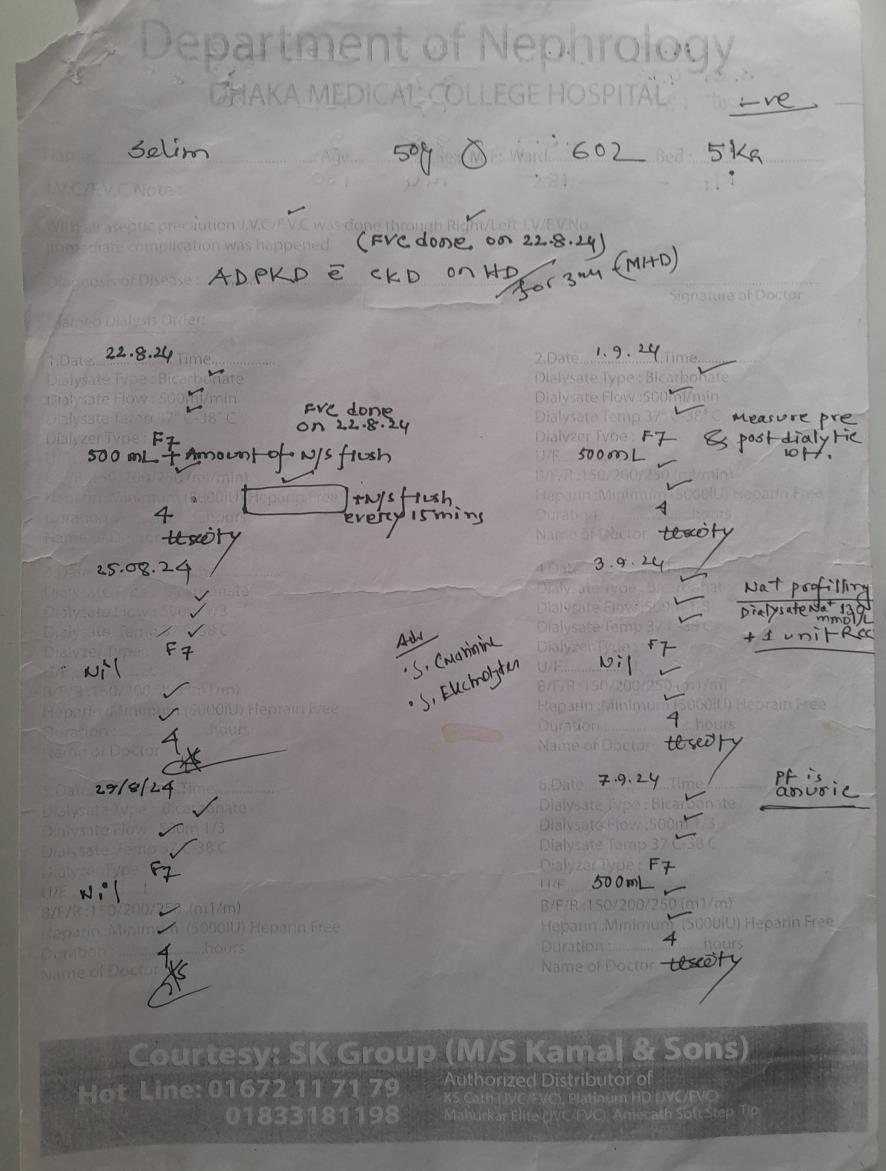 Department of Nephrology
DHAKA MEDICAL COLLEGE HOSPITAL
-ve
Selim Age 50y Sex Ward 602 Bed: 5Ka
J.V.C/F.V.C Note:
With all aseptic precaution J.V.C/F.V.C was done through Right/Left J.V/F.V.No
immediate complication was happened (FVC done on 22.8.24)
Diagnosis of Disease: ADPKD ē CKD on HD for (MHD)
Signature of Doctor
Dialysis Order:
1.Date 22.8.24 Time
Dialysate Type: Bicarbonate
Dialysate Flow: 500ml/min
Dialysate Temp 37° C-38° C
FVC done
on 22.8.24
Dialyzer Type: F7
500 mL + Amount of N/S flush
B/F/R:150/200/250 (ml/min)
Heparin: Minimum (5000IU) Heparin Free +N/S flush
every 15 mins
Duration 4 hours
Name of Doctor
25.08.24
F7
Nil
B/F/R:150/200/250 (m1/m)
Heparin: Minimum (5000IU) Heprain Free
Duration: 4 hours
Name of Doctor
Adv
• S. Creatinine
• S. Electrolytes
5.Date 29/8/24 Time
Dialysate Type: Bicarbonate
Dialysate Flow: 500m 1/3
Dialysate Temp 37 C-38 C
Dialyzer Type: F7
U/F Nil
B/F/R:150/200/250 (m1/m)
Heparin :Minimum (5000IU) Heparin Free
Duration 4 hours
Name of Doctor
2.Date 1.9.24 Time
Dialysate Type: Bicarbonate
Dialysate Flow :500ml/min
Dialysate Temp 37° C-38° C
Dialyzer Type: F7
Measure pre
& post dialytic
wt.
U/F 500mL
B/F/R:150/200/250 (ml/min)
Heparin:Minimum (5000IU) Heparin Free
Duration 4 hours
Name of Doctor
4.Date 3.9.24
Dialysate Type: Bicarbonate
Dialysate Flow: 500m 1/3
Dialysate Temp 37 C-38 C
Na+ profilling
Dialysate Na+ 130
mmol/L
+ 1 unit RCC
Dialyzer Type: F7
U/F Nil
B/F/R:150/200/250 (m1/m)
Heparin :Minimum (5000IU) Heprain Free
Duration 4 hours
Name of Doctor
6.Date 7.9.24 Time
Pt is
anuric
Dialysate Type: Bicarbonate
Dialysate Flow :500m 1/3
Dialysate Temp 37 C-38 C
Dialyzer Type: F7
U/F 500mL
B/F/R:150/200/250 (m1/m)
Heparin :Minimum (5000IU) Heparin Free
Duration: 4 hours
Name of Doctor
Courtesy: SK Group (M/S Kamal & Sons)
Hot Line: 01672 11 71 79
01833181198
Authorized Distributor of
KS Cath (JVC/FVC), Platinum HD (JVC/FVC)
Mahurkar Elite (JVC/FVC), Amecath Soft Step Tip